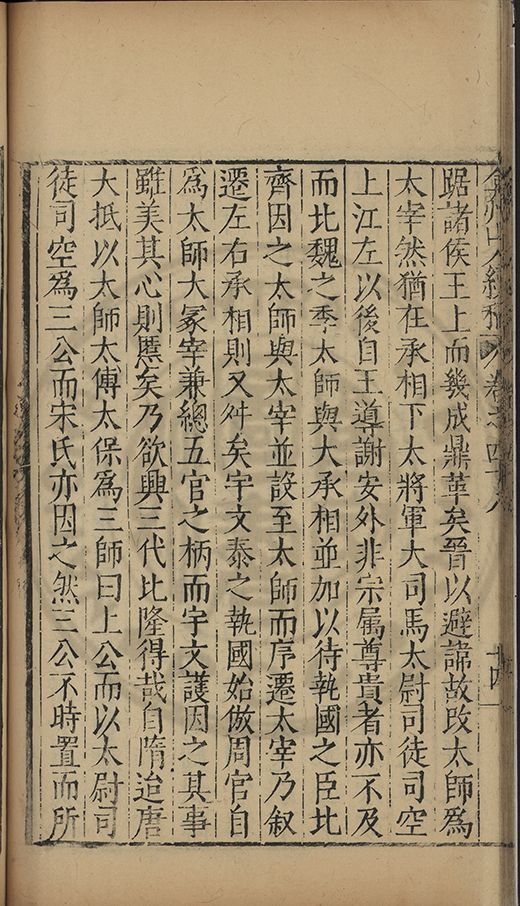 弇州山人續稿 卷之四十八 十四
踞諸侯王上而幾成鼎革矣晉以避諱故改太師爲
太宰然猶在丞相下太將軍大司馬太尉司徒司空
上江左以後自王導謝安外非宗属尊貴者亦不及
而比魏之季太師與大丞相並加以待執國之臣比
齊因之太師與太宰並設至太師而序遷太宰乃叙
遷左右丞相則又舛矣宇文泰之執國始倣周官自
爲太師大冢宰兼總五官之柄而宇文護因之其事
雖美其心則慝矣乃欲興三代比隆得哉自隋迨唐
大抵以太師太傅太保爲三師曰上公而以太尉司
徒司空爲三公而宋氏亦因之然三公不時置而所